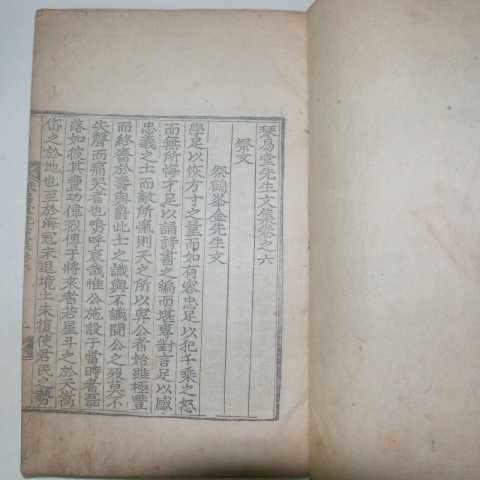 琴易堂先生文集卷之六
祭文
祭鶴峯金先生文
學足以恢方寸之量而如有容忠足以犯千乘之怒
而無所悔才足以誦詩書之編而堪專對言足以感
忠義之士而敵所愾則天之所以畀公者始雖極豐
而終嗇於壽與爵此士之識與不識聞公之歿莫不
失聲而痛哭者也嗚呼哀哉惟公施設于當時者磊
落如彼其豐功偉烈傳于將來者若星斗之於天嵩
岱之於地也至於海寇未退境土未復使君民之勢